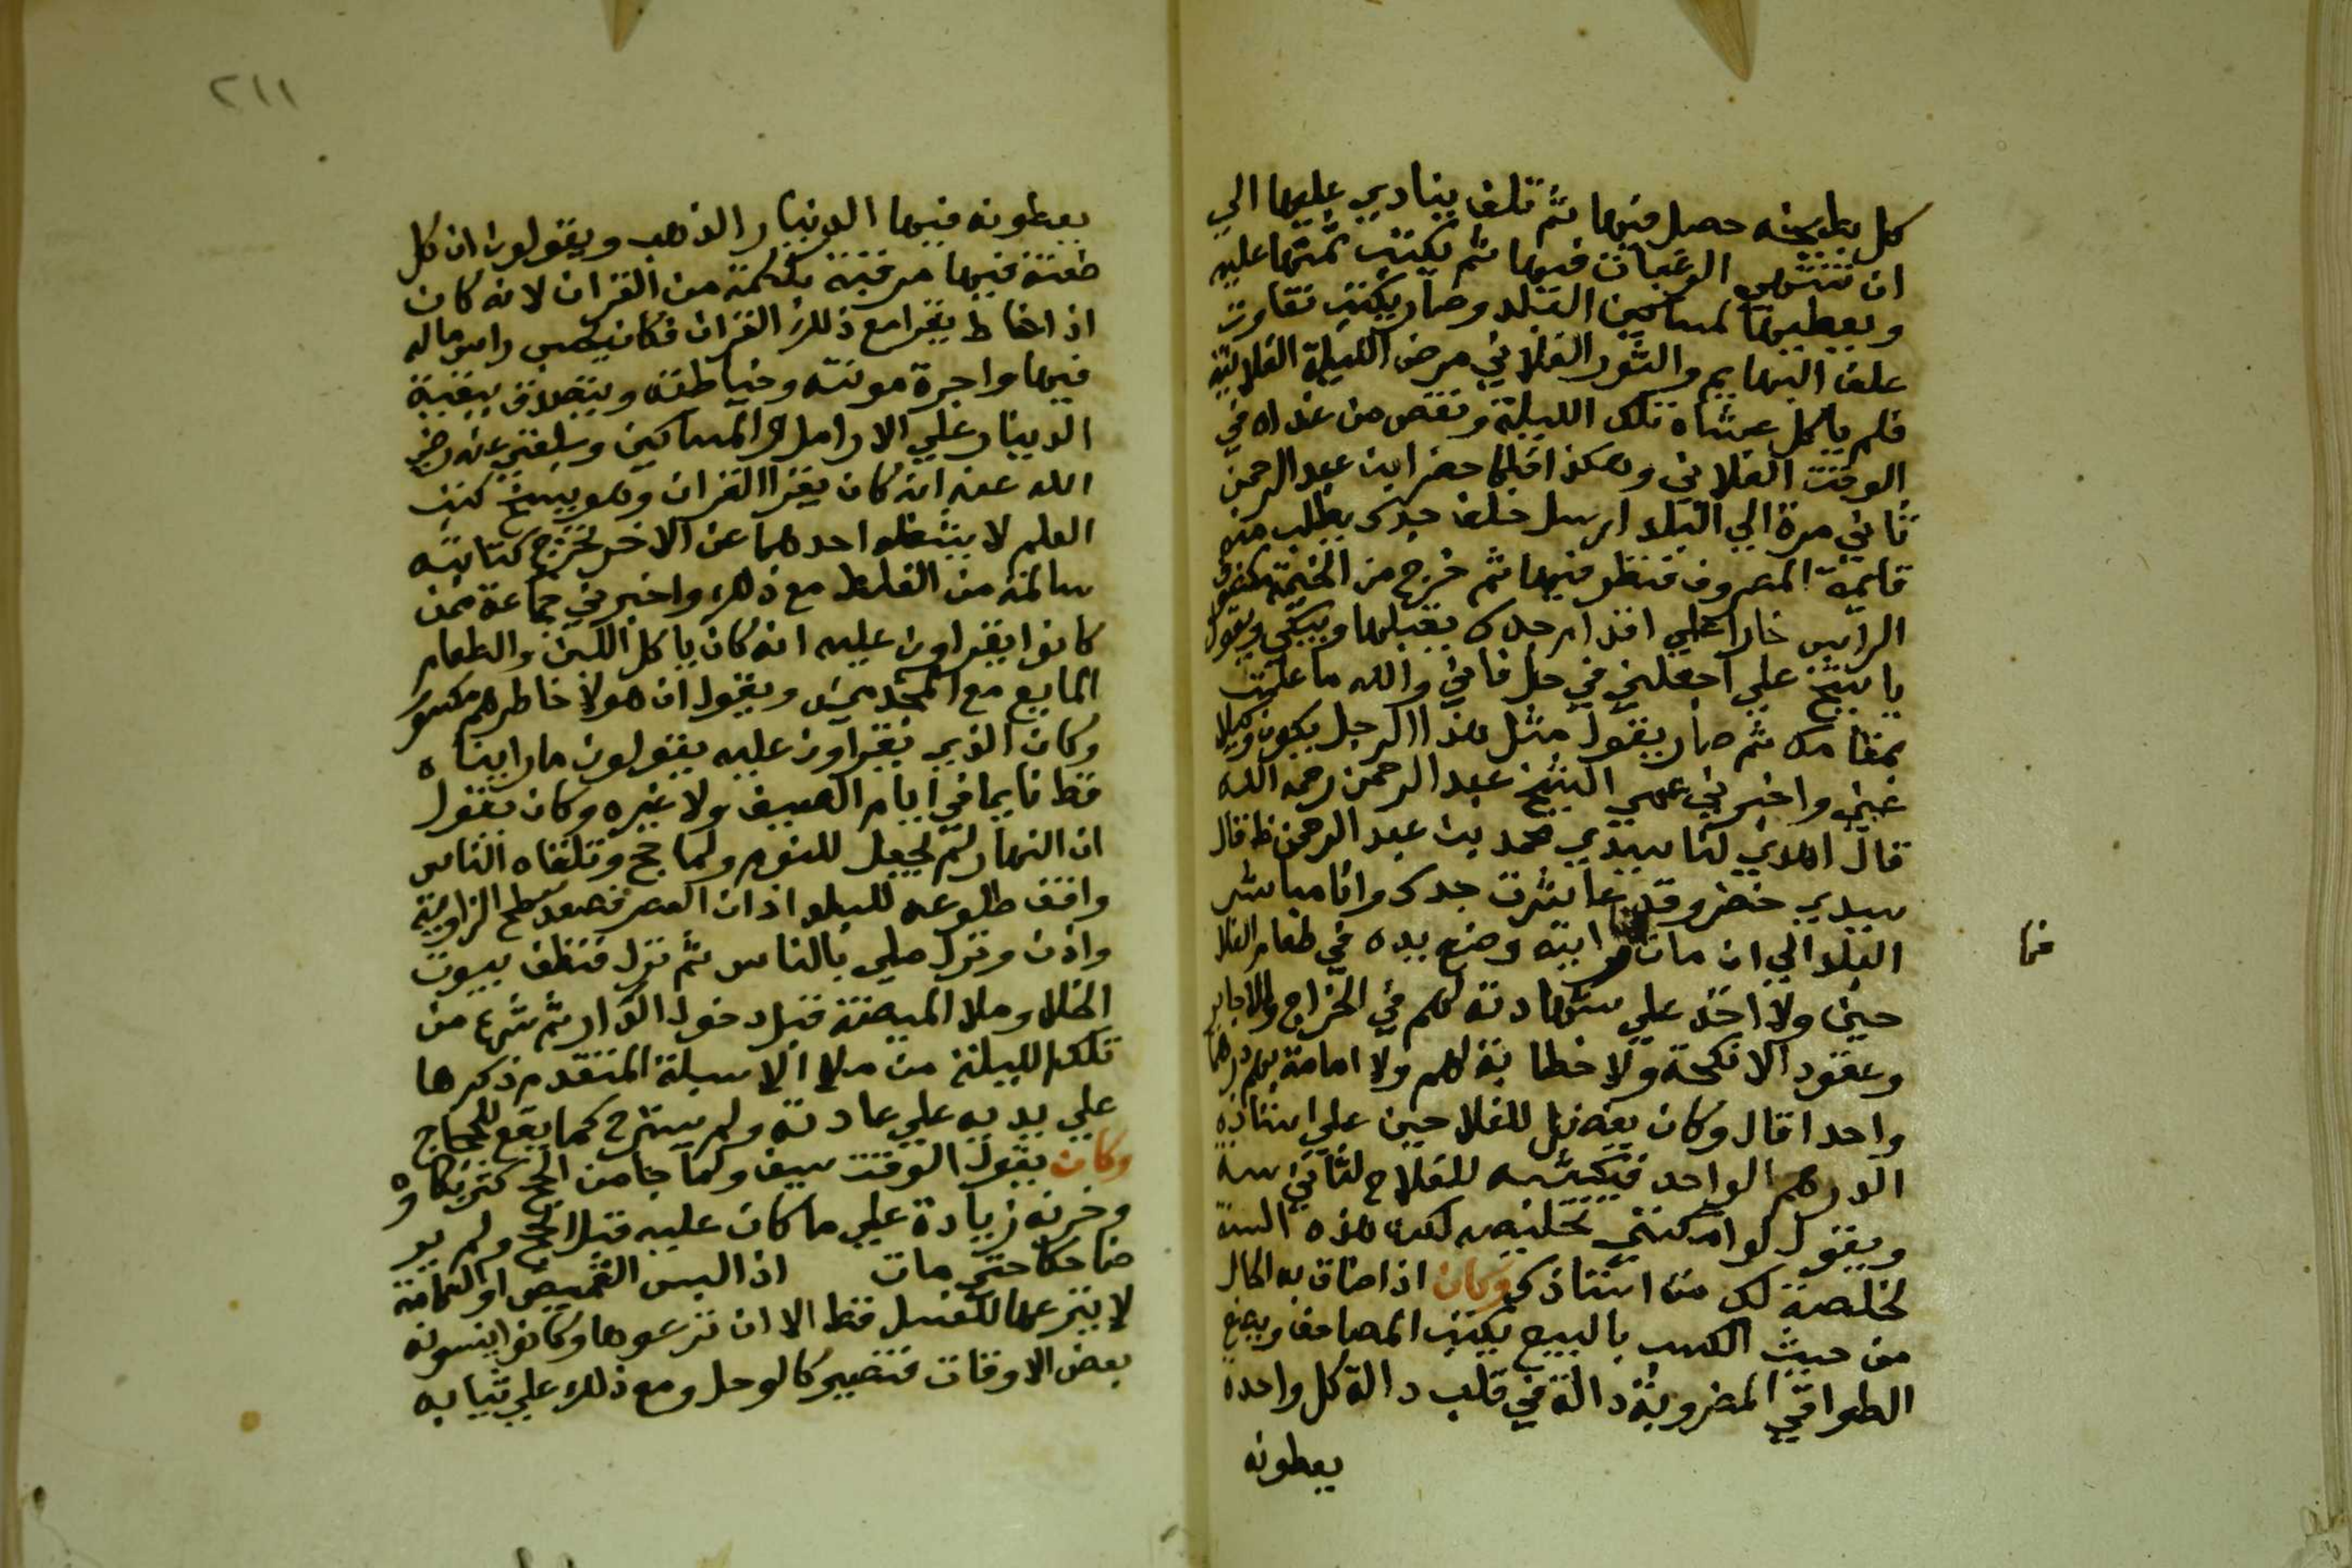 كل بطيخه حصل فيها ثم تلف ينادي عليها الي
ان تنتهي الرغبات فيها ثم يكتب ثمنها عليه
ويعطيها لمساكين البلد وصار يكتب تفاوت
علف البهايم والثور الفلاني مرض الليلة الفلانيه
فلم ياكل عشاه تلك الليلة ونقص من غداه في
الوقت الفلاني وهكذا فلما حضر ابن عبد الرحمن
ثاني مرة الي البلد ارسل خلف جدي يطلب منه
قايمة المصروف فنظر فيها ثم خرج من الخيمة مكشوف
الراس خارا علي اقدام جدي يقبلها ويبكي ويقول
يا شيخ علي اجعلني في حل فاني والله ما علمت
بمقامك ثم صار يقول مثل هذا الرجل يكون وكيلا
عني واخبرني عمي الشيخ عبد الرحمن رحمه الله
قال اهدي لنا سيدي محمد بن عبد الرحمن قال
سيدي خضر وقد عاشرت جدك وانا مباشر
البلد الي ان مات ما رايته وضع يده في طعام الفلا
حين ولا اخذ علي شهادته لهم في الخراج والاجاير
وعقود الانكحة ولا خطابة لهم ولا امامة بهم درهما
واحدا قال وكان يفضل للفلاحين علي استاذه
الدرهم الواحد فيكتبه للفلاح لثاني سنة
ويقول لو امكنني تخليصه لك هذه السنة
لخلصته لك من استاذك وكان اذا ضاق به الحال
من حيث الكسب بالبيع يكتب المصاحف ويصنع
الطواقي المضروبة دالة في قلب دالة كل واحدة
يعطونه
فما
٢١١
يعطونه فيها الدينار الذهب ويقولون ان كل
طعنة فيها مرقية بختمة من القران لانه كان
اذا خاط يقرا مع ذلك القران فكان يحسب راس ماله
فيها واجرة مونته وخياطته ويتصدق ببقية
الدينار علي الارامل والمساكين وبلغني عنه رضي
الله عنه انه كان يقرا القران وهو ينسخ كتب
العلم لا يشغله احدهما عن الاخر تخرج كتابته
سالمة من الغلط مع ذلك واخبرني جماعة ممن
كانوا يقراون عليه انه كان ياكل اللبن والطعام
المايع مع المجذومين ويقول ان هولا خاطرهم مكسور
وكان الذين يقراون عليه يقولون ما رايناه
قط نايما في ايام الصيف ولا غيره وكان يقول
ان النهار لم يجعل للنوم ولما حج وتلقاه الناس
وافق طلوعه للبلد اذان العصر فصعد سطح الزاوية
واذن ونزل صلي بالناس ثم نزل فنظف بيوت
الخلا وملا الميضة قبل دخول الدار ثم شرع من
تلك الليلة من ملا الاسبلة المتقدم ذكرها
علي يديه علي عادته ولم يسترح كما يقع للحجاج
وكان يقول الوقت سيف ولما جا من الحج كثر بكاوه
وحزنه زيادة علي ما كان عليه قبل الحج ولم ير
ضاحكا حتي مات اذا لبس القميص او العمامة
لا ينزعها للغسل قط الا ان نزعوها وكانوا ينسونه
بعض الاوقات فتصير كالوحل ومع ذلك علي ثيابه